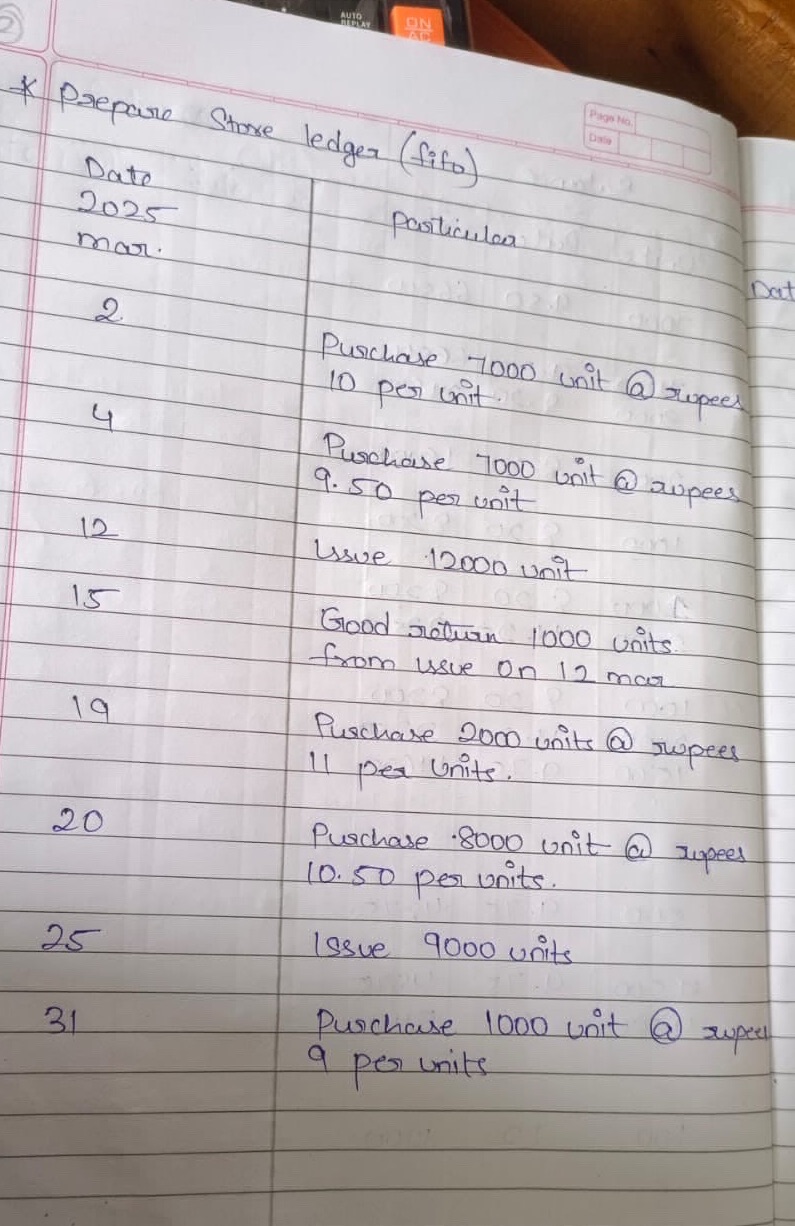 AUTO
REPLAY
ON
AC
2
* Prepare Store ledger (fifo)
Page No.
Date
Date
2025
mar.
Particular
Dat
2
Purchase 7000 unit @ rupees
10 per unit.
4
Purchase 7000 unit @ rupees
9.50 per unit
12
Issue 12000 unit
15
Good return 1000 units
from issue on 12 mar
19
Purchase 2000 units @ rupees
11 per units.
20
Purchase 8000 unit @ rupees
10.50 per units.
25
Issue 9000 units
31
Purchase 1000 unit @ rupees
9 per units